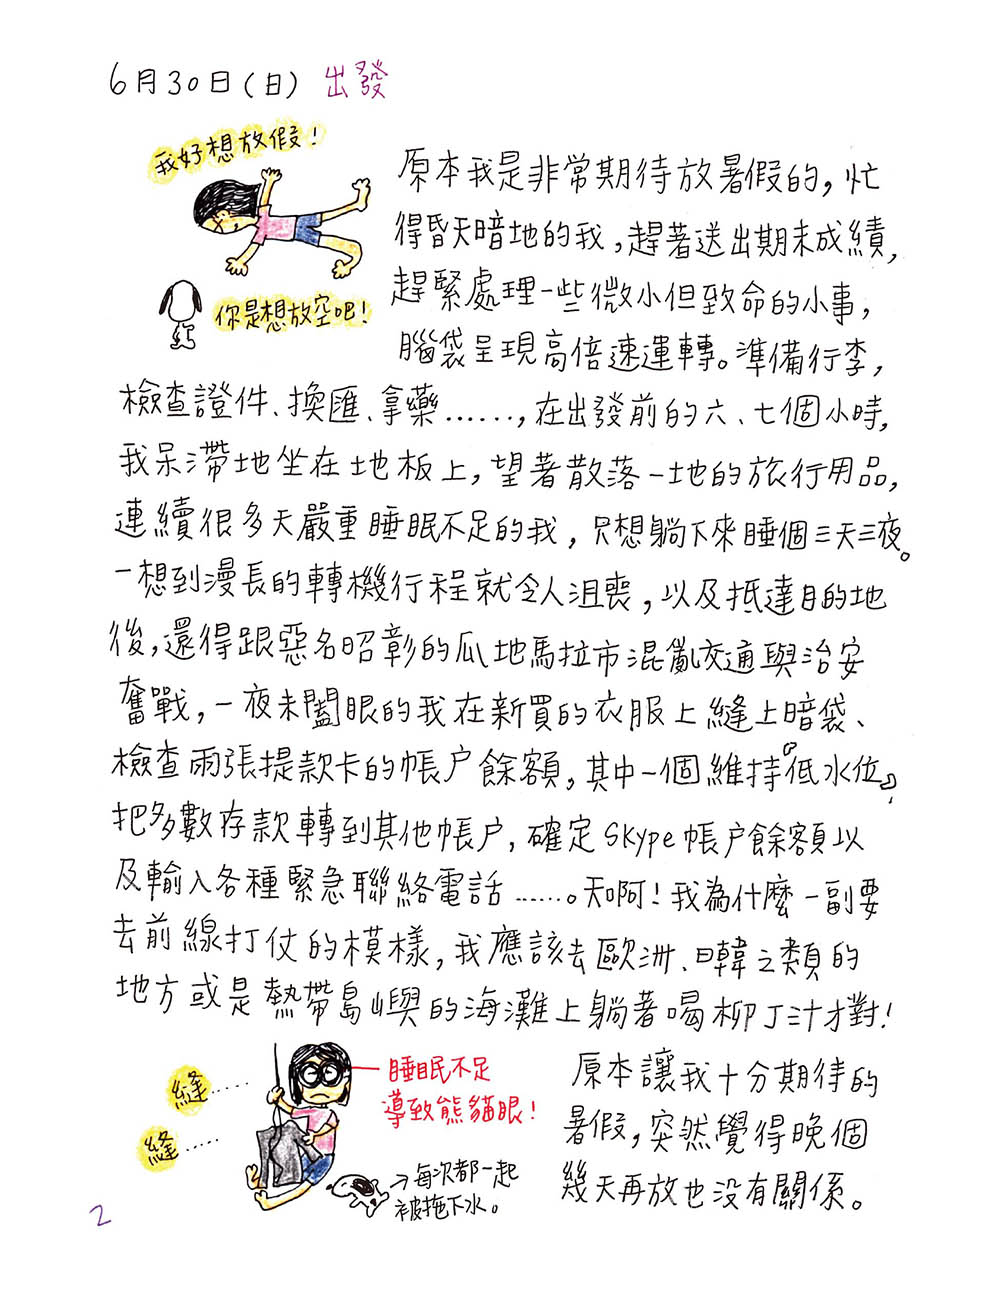 6月30日(日) 出發
我好想放假!
你是想放空吧!
原本我是非常期待放暑假的,忙
得昏天暗地的我,趕著送出期末成績,
趕緊處理一些微小但致命的小事,
腦袋呈現高倍速運轉。準備行李,
檢查證件、換匯、拿藥……,在出發前的六、七個小時,
我呆滯地坐在地板上,望著散落一地的旅行用品,
連續很多天嚴重睡眠不足的我,只想躺下來睡個三天三夜。
一想到漫長的轉機行程就令人沮喪,以及抵達目的地
後,還得跟惡名昭彰的瓜地馬拉市混亂交通與治安
奮戰,一夜未闔眼的我在新買的衣服上縫上暗袋、
檢查兩張提款卡的帳戶餘額,其中一個維持『低水位』,
把多數存款轉到其他帳戶,確定Skype帳戶餘額以
及輸入各種緊急聯絡電話……。天啊!我為什麼一副要
去前線打仗的模樣,我應該去歐洲、日韓之類的
地方或是熱帶島嶼的海灘上躺著喝柳丁汁才對!
縫……
縫……
睡眠不足
導致熊貓眼!
→每次都一起
被拖下水。
原本讓我十分期待的
暑假,突然覺得晚個
幾天再放也没有關係。
2